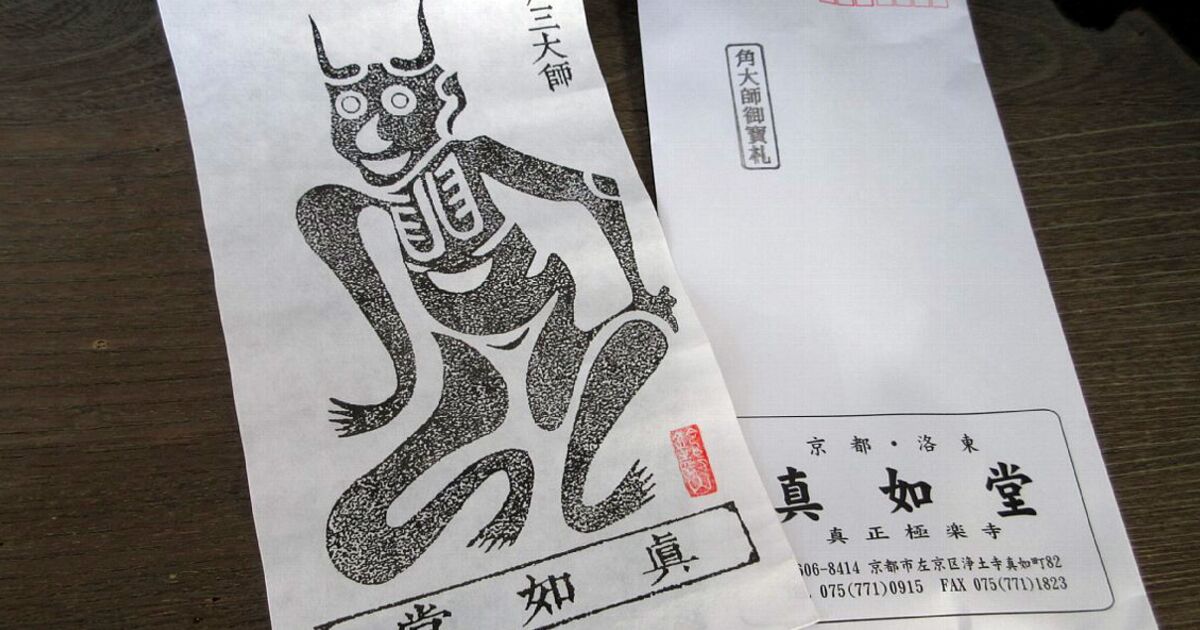 三大師
眞如堂
角大師御寶札
京都・洛東
真如堂
真正極楽寺
606-8414 京都市左京区浄土寺真如町82
075(771)0915 FAX 075(771)1823